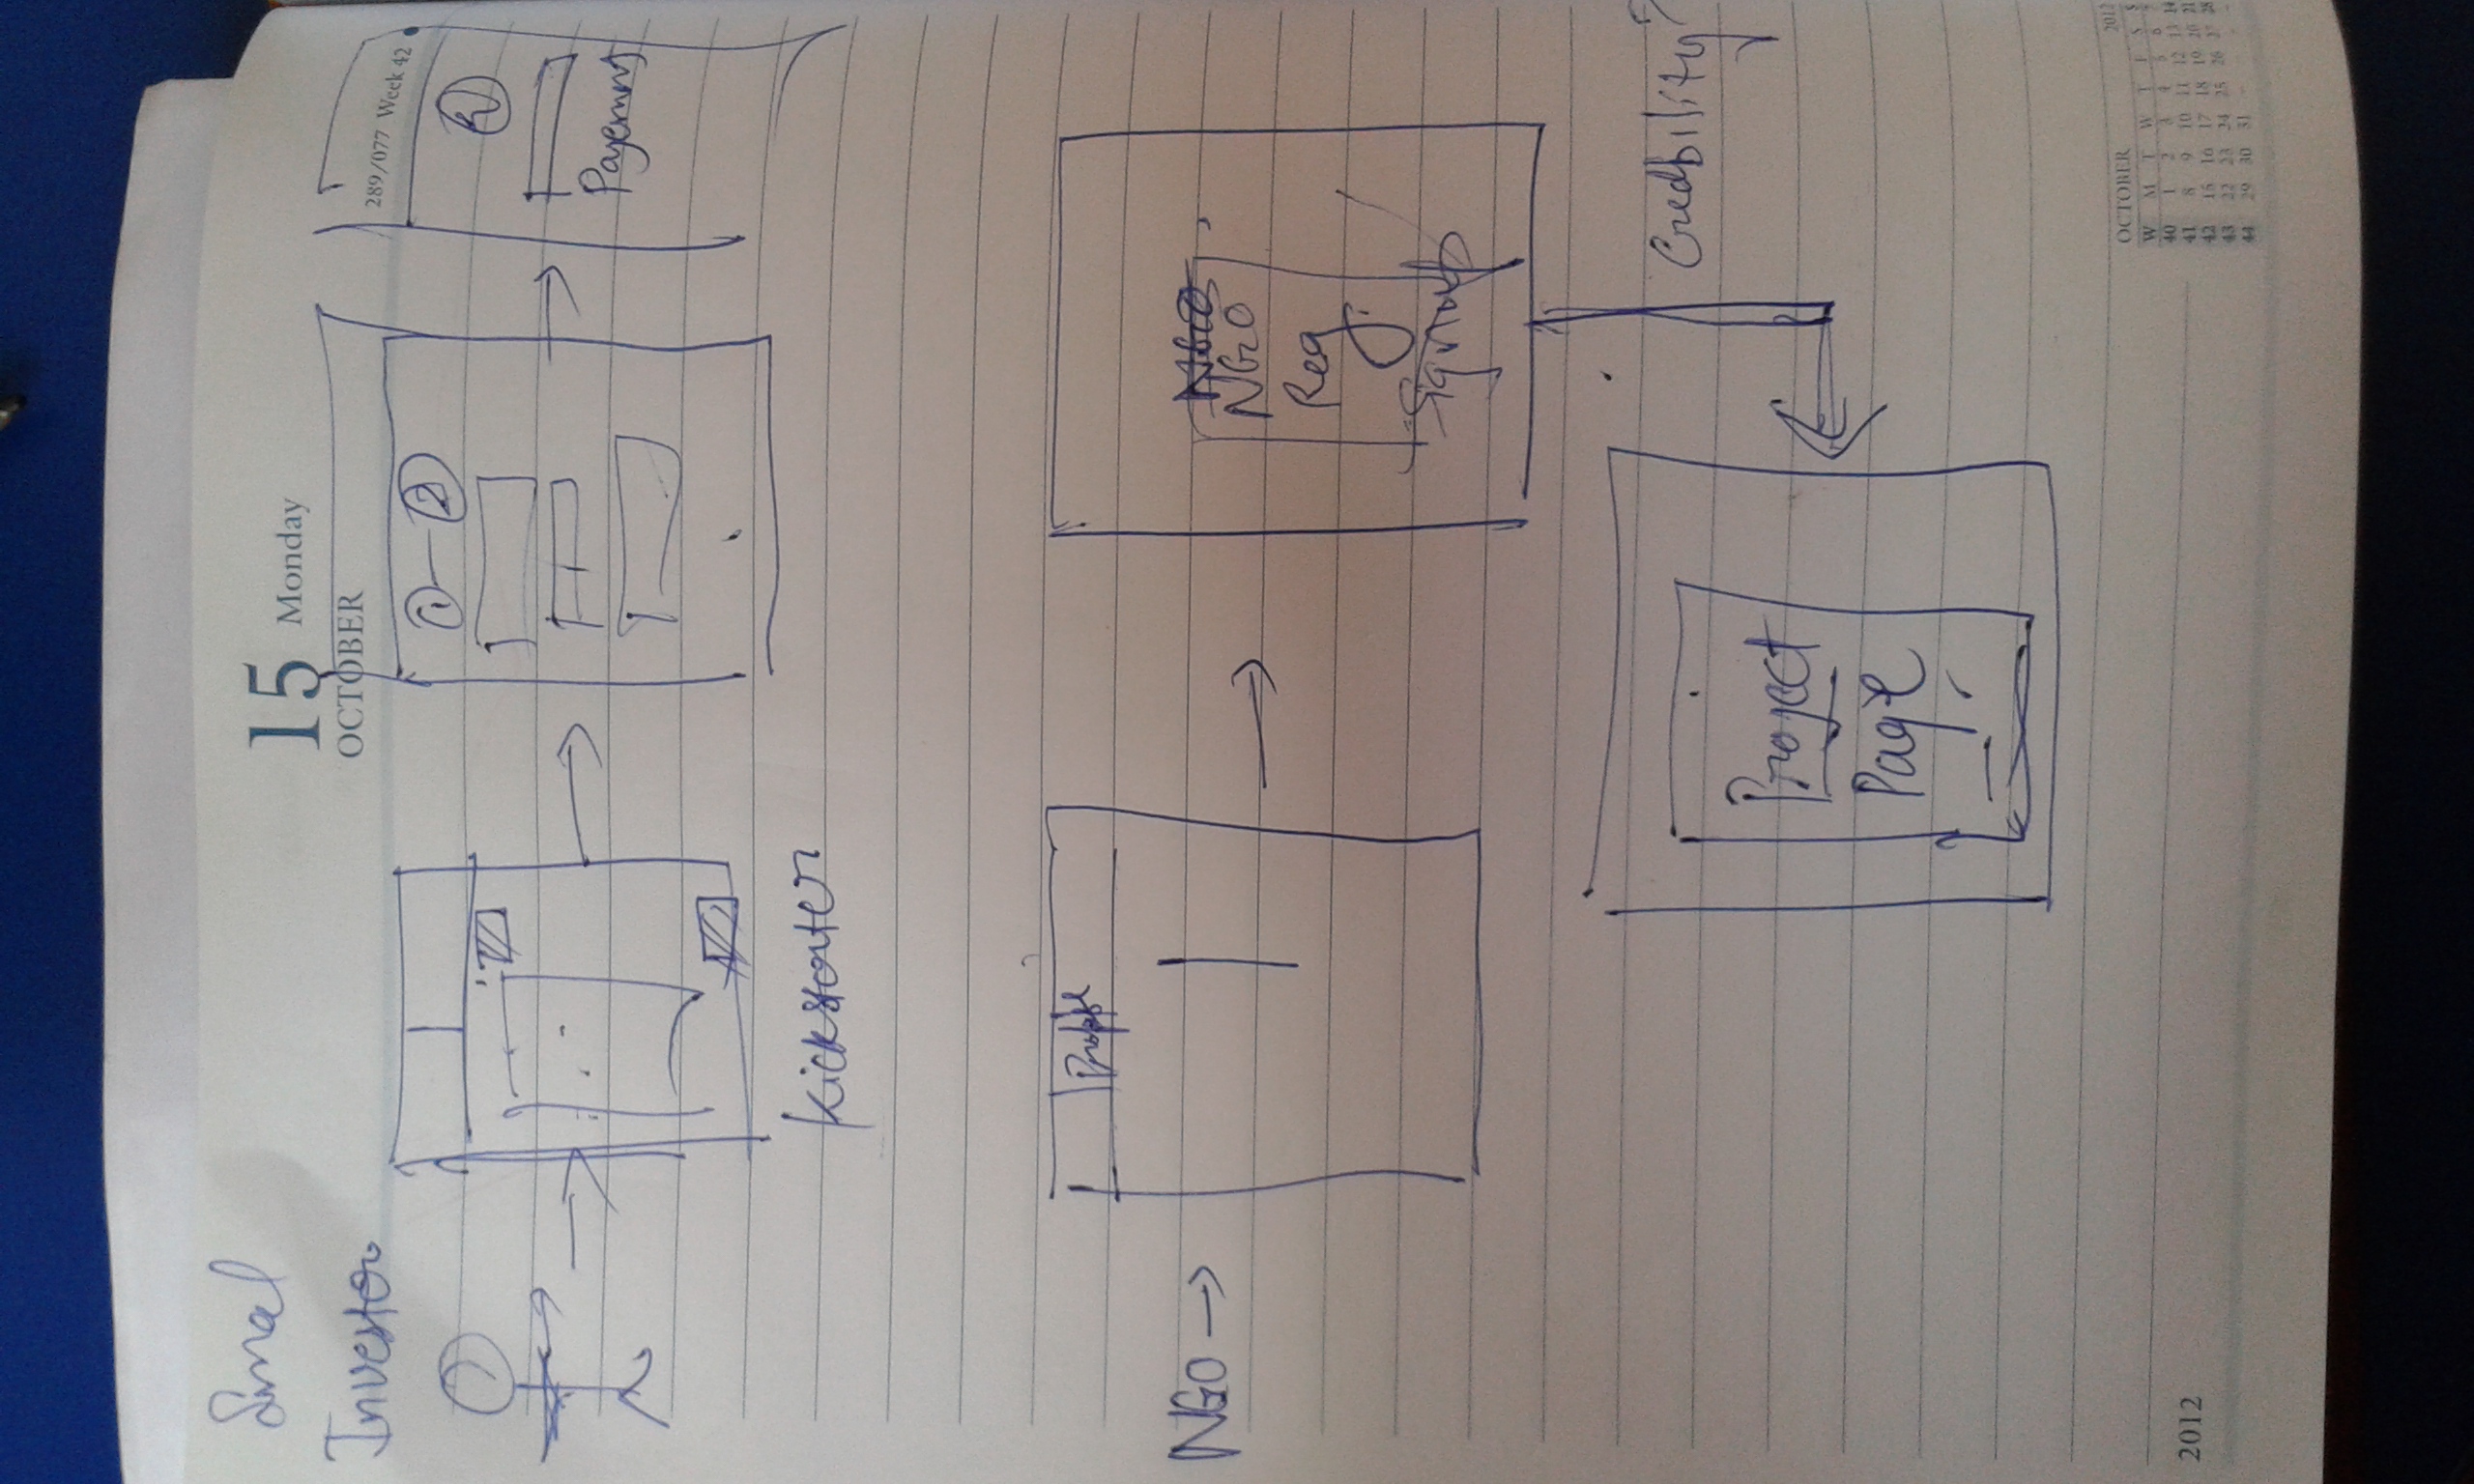 Smal
Investor
15 Monday
OCTOBER
289/077 Week 42
1 2
Payemnt
Kickstarter
NGO
NGO
Reg.
Signup
Credbility?
Project
Page
2012
OCTOBER 2012
W M T W T F S S
40 1 2 3 4 5 6
41 8 9 10 11 12 13 14
42 15 16 17 18 19 20 21
43 22 23 24 25 26 27 28
44 29 30 31